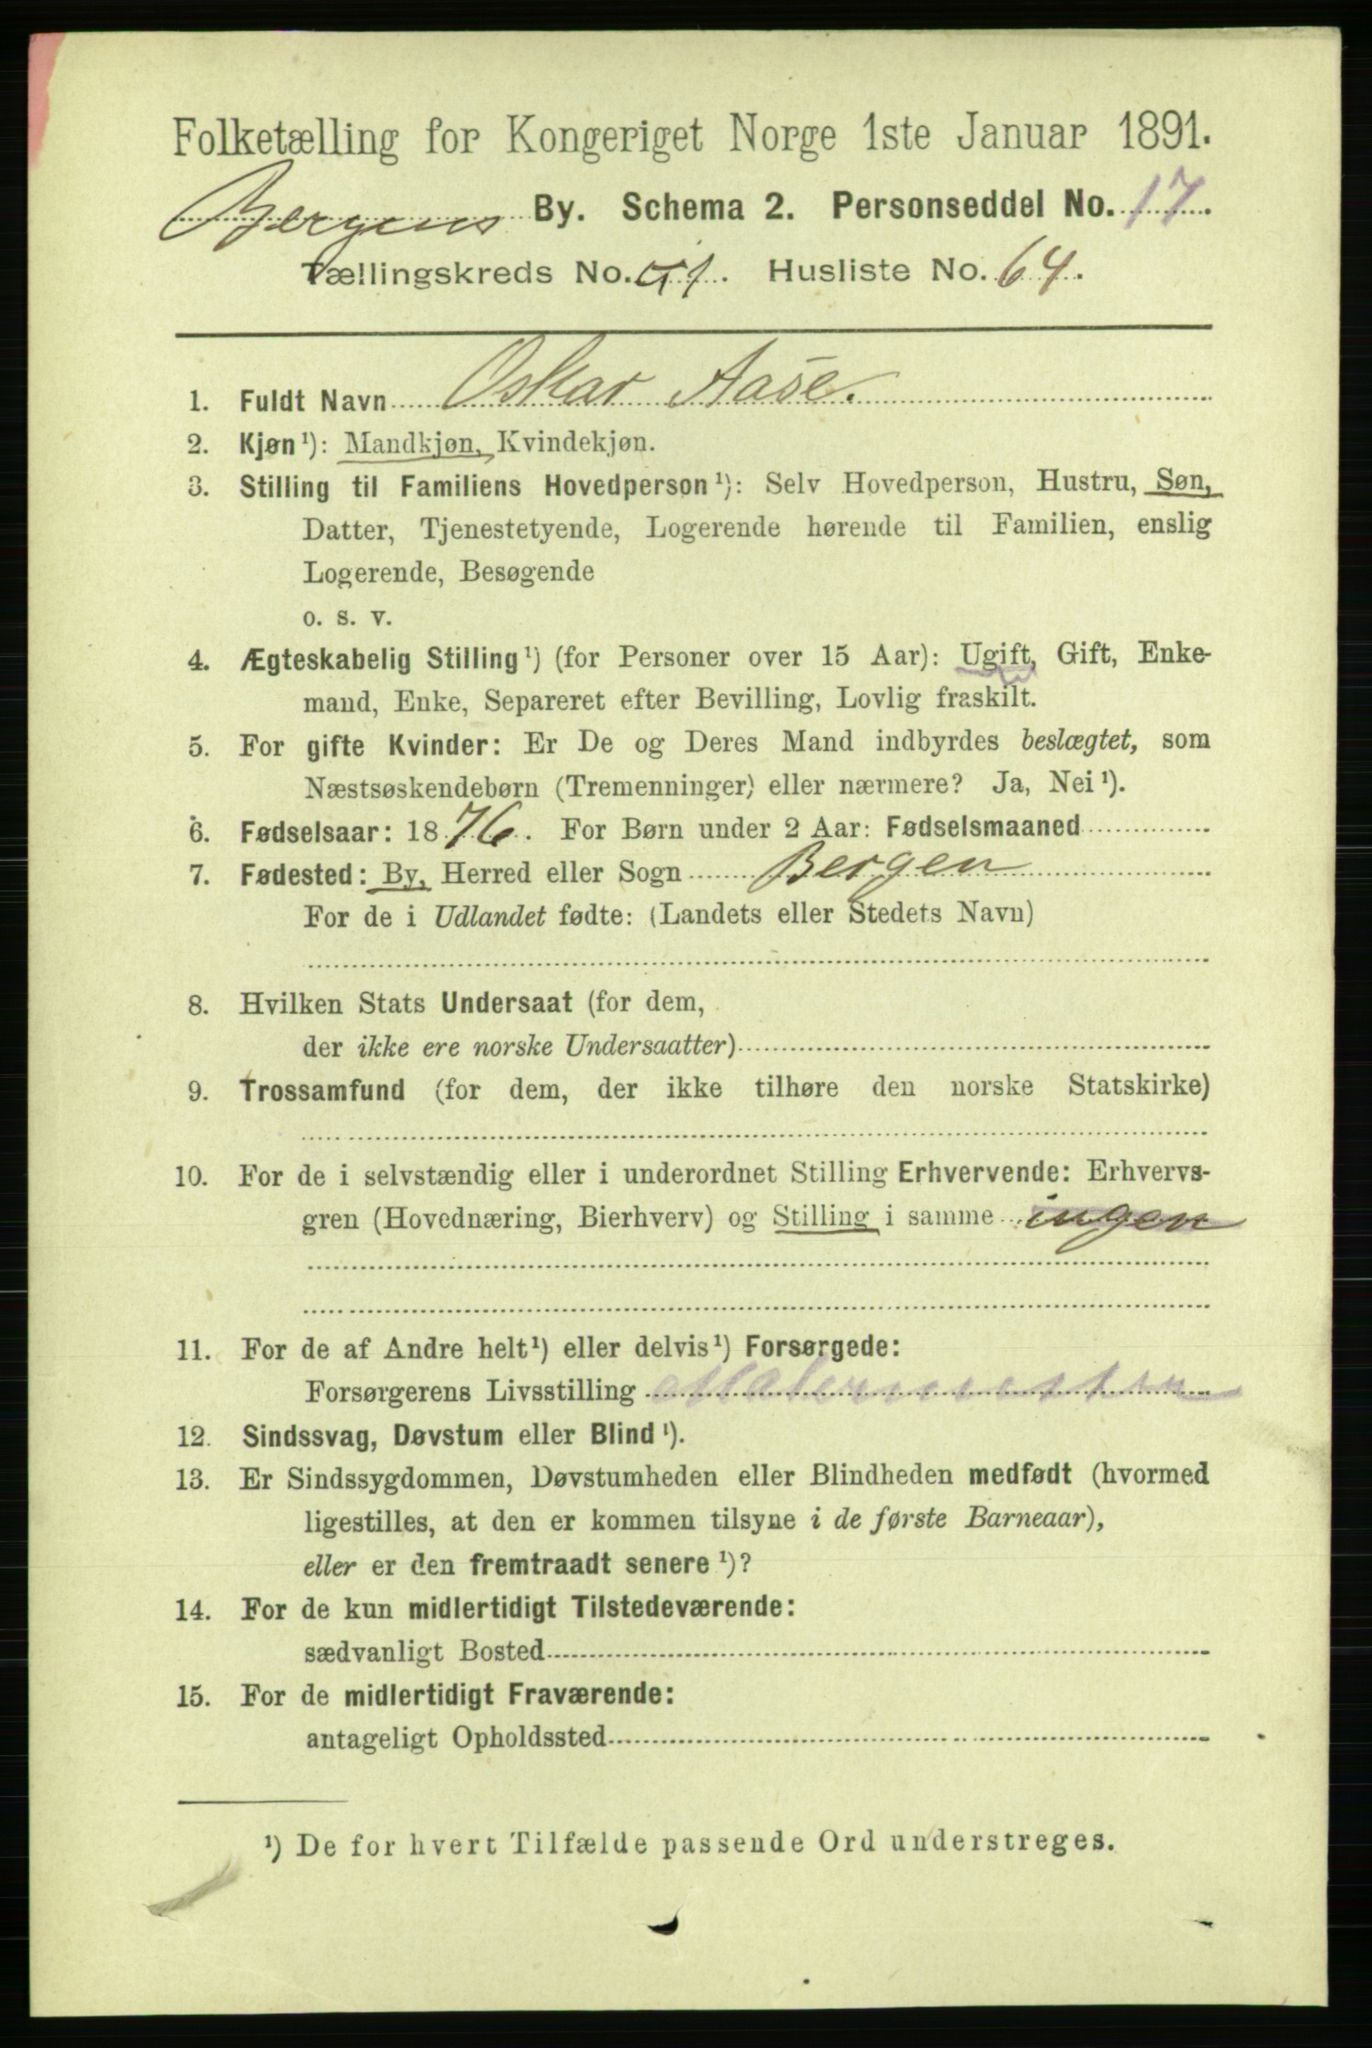 Folketælling for Kongeriget Norge 1ste Januar 1891.
Bergens By. Schema 2. Personseddel No. 17.
Tællingskreds No. 51. Husliste No. 64.
1. Fuldt Navn Oskar Aase.
2. Kjøn¹): Mandkjøn, Kvindekjøn.
3. Stilling til Familiens Hovedperson¹): Selv Hovedperson, Hustru, Søn,
Datter, Tjenestetyende, Logerende hørende til Familien, enslig
Logerende, Besøgende
o. s. v.
4. Ægteskabelig Stilling¹) (for Personer over 15 Aar): Ugift, Gift, Enke-
mand, Enke, Separeret efter Bevilling, Lovlig fraskilt.
5. For gifte Kvinder: Er De og Deres Mand indbyrdes beslægtet, som
Næstsøskendebørn (Tremenninger) eller nærmere? Ja, Nei¹).
6. Fødselsaar: 1876. For Børn under 2 Aar: Fødselsmaaned
7. Fødested: By, Herred eller Sogn Bergen
For de i Udlandet fødte: (Landets eller Stedets Navn)
8. Hvilken Stats Undersaat (for dem,
der ikke ere norske Undersaatter)
9. Trossamfund (for dem, der ikke tilhøre den norske Statskirke)
10. For de i selvstændig eller i underordnet Stilling Erhvervende: Erhvervs-
gren (Hovednæring, Bierhverv) og Stilling i samme ingen
11. For de af Andre helt¹) eller delvis¹) Forsørgede:
Forsørgerens Livsstilling Malermester
12. Sindssvag, Døvstum eller Blind¹).
13. Er Sindssygdommen, Døvstumheden eller Blindheden medfødt (hvormed
ligestilles, at den er kommen tilsyne i de første Barneaar),
eller er den fremtraadt senere¹)?
14. For de kun midlertidigt Tilstedeværende:
sædvanligt Bosted
15. For de midlertidigt Fraværende:
antageligt Opholdssted
¹) De for hvert Tilfælde passende Ord understreges.